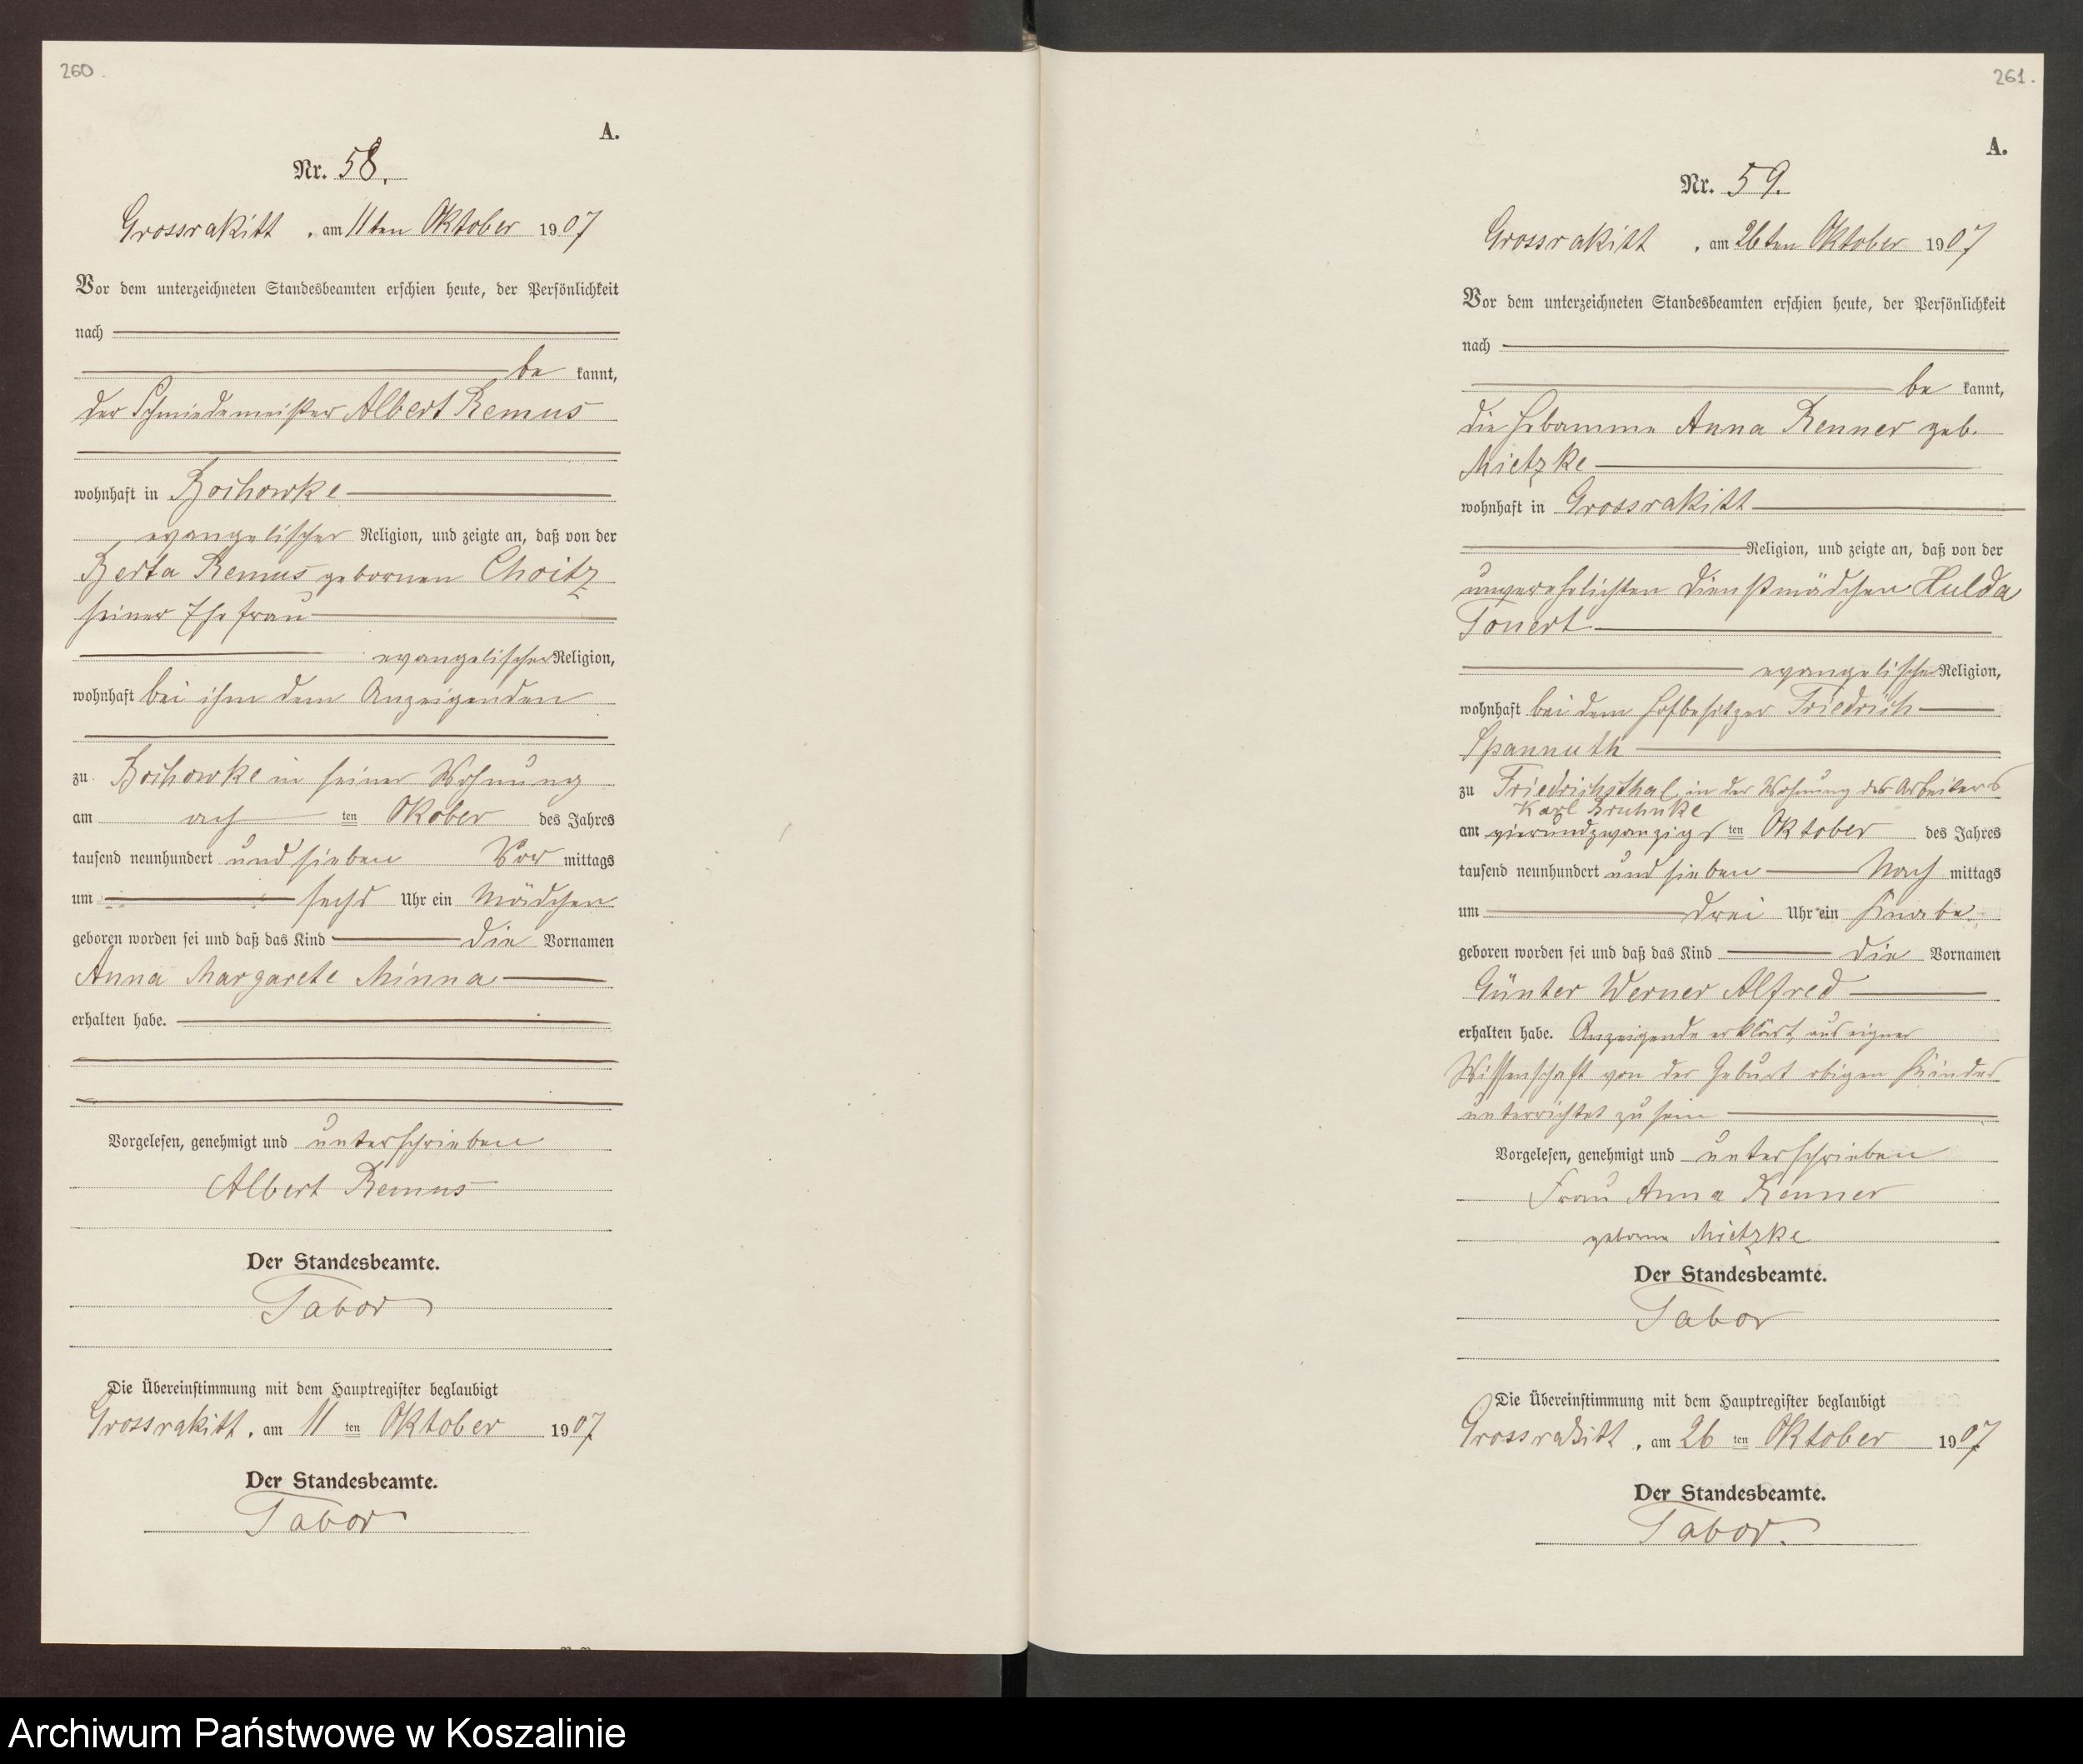 260.
A.
Nr. 58.
Grossrakitt, am 11ten Oktober 1907
Vor dem unterzeichneten Standesbeamten erschien heute, der Persönlichkeit
nach
be kannt,
der Schmiedemeister Albert Remus
wohnhaft in Bochowke
evangelischer Religion, und zeigte an, daß von der
Berta Remus gebornen Choitz
seiner Ehefrau
evangelischer Religion,
wohnhaft bei ihm dem Anzeigenden
zu Bochowke in seiner Wohnung
am ach ten Okober des Jahres
tausend neunhundert und sieben Vor mittags
um sechs Uhr ein Mädchen
geboren worden sei und daß das Kind die Vornamen
Anna Margarete Minna
erhalten habe.
Vorgelesen, genehmigt und unterschrieben
Albert Remus
Der Standesbeamte.
Tabor
Die Übereinstimmung mit dem Hauptregister beglaubigt
Grossrakitt, am 11 ten Oktober 1907
Der Standesbeamte.
Tabor
261.
A.
Nr. 59.
Grossrakitt, am 26ten Oktober 1907
Vor dem unterzeichneten Standesbeamten erschien heute, der Persönlichkeit
nach
be kannt,
die Hebamme Anna Renner geb.
Mietzke
wohnhaft in Grossrakitt
Religion, und zeigte an, daß von der
unverehelichten Dienstmädchen Hulda
Tonert
evangelischer Religion,
wohnhaft bei dem Hofbesitzer Friedrich
Spannuth
zu Friedrichsthal in der Wohnung des Arbeiters
Karl Bruhnke
am vierundzwanzigs ten Oktober des Jahres
tausend neunhundert und sieben Nach mittags
um drei Uhr ein Knabe
geboren worden sei und daß das Kind die Vornamen
Günter Werner Alfred
erhalten habe. Anzeigende erklärt, aus eigner
Wissenschaft von der Geburt obigen Kindes
unterrichtet zu sein
Vorgelesen, genehmigt und unterschrieben
Frau Anna Renner
geborne Mietzke
Der Standesbeamte.
Tabor
Die Übereinstimmung mit dem Hauptregister beglaubigt
Grossrakitt, am 26 ten Oktober 1907
Der Standesbeamte.
Tabor.
Archiwum Państwowe w Koszalinie